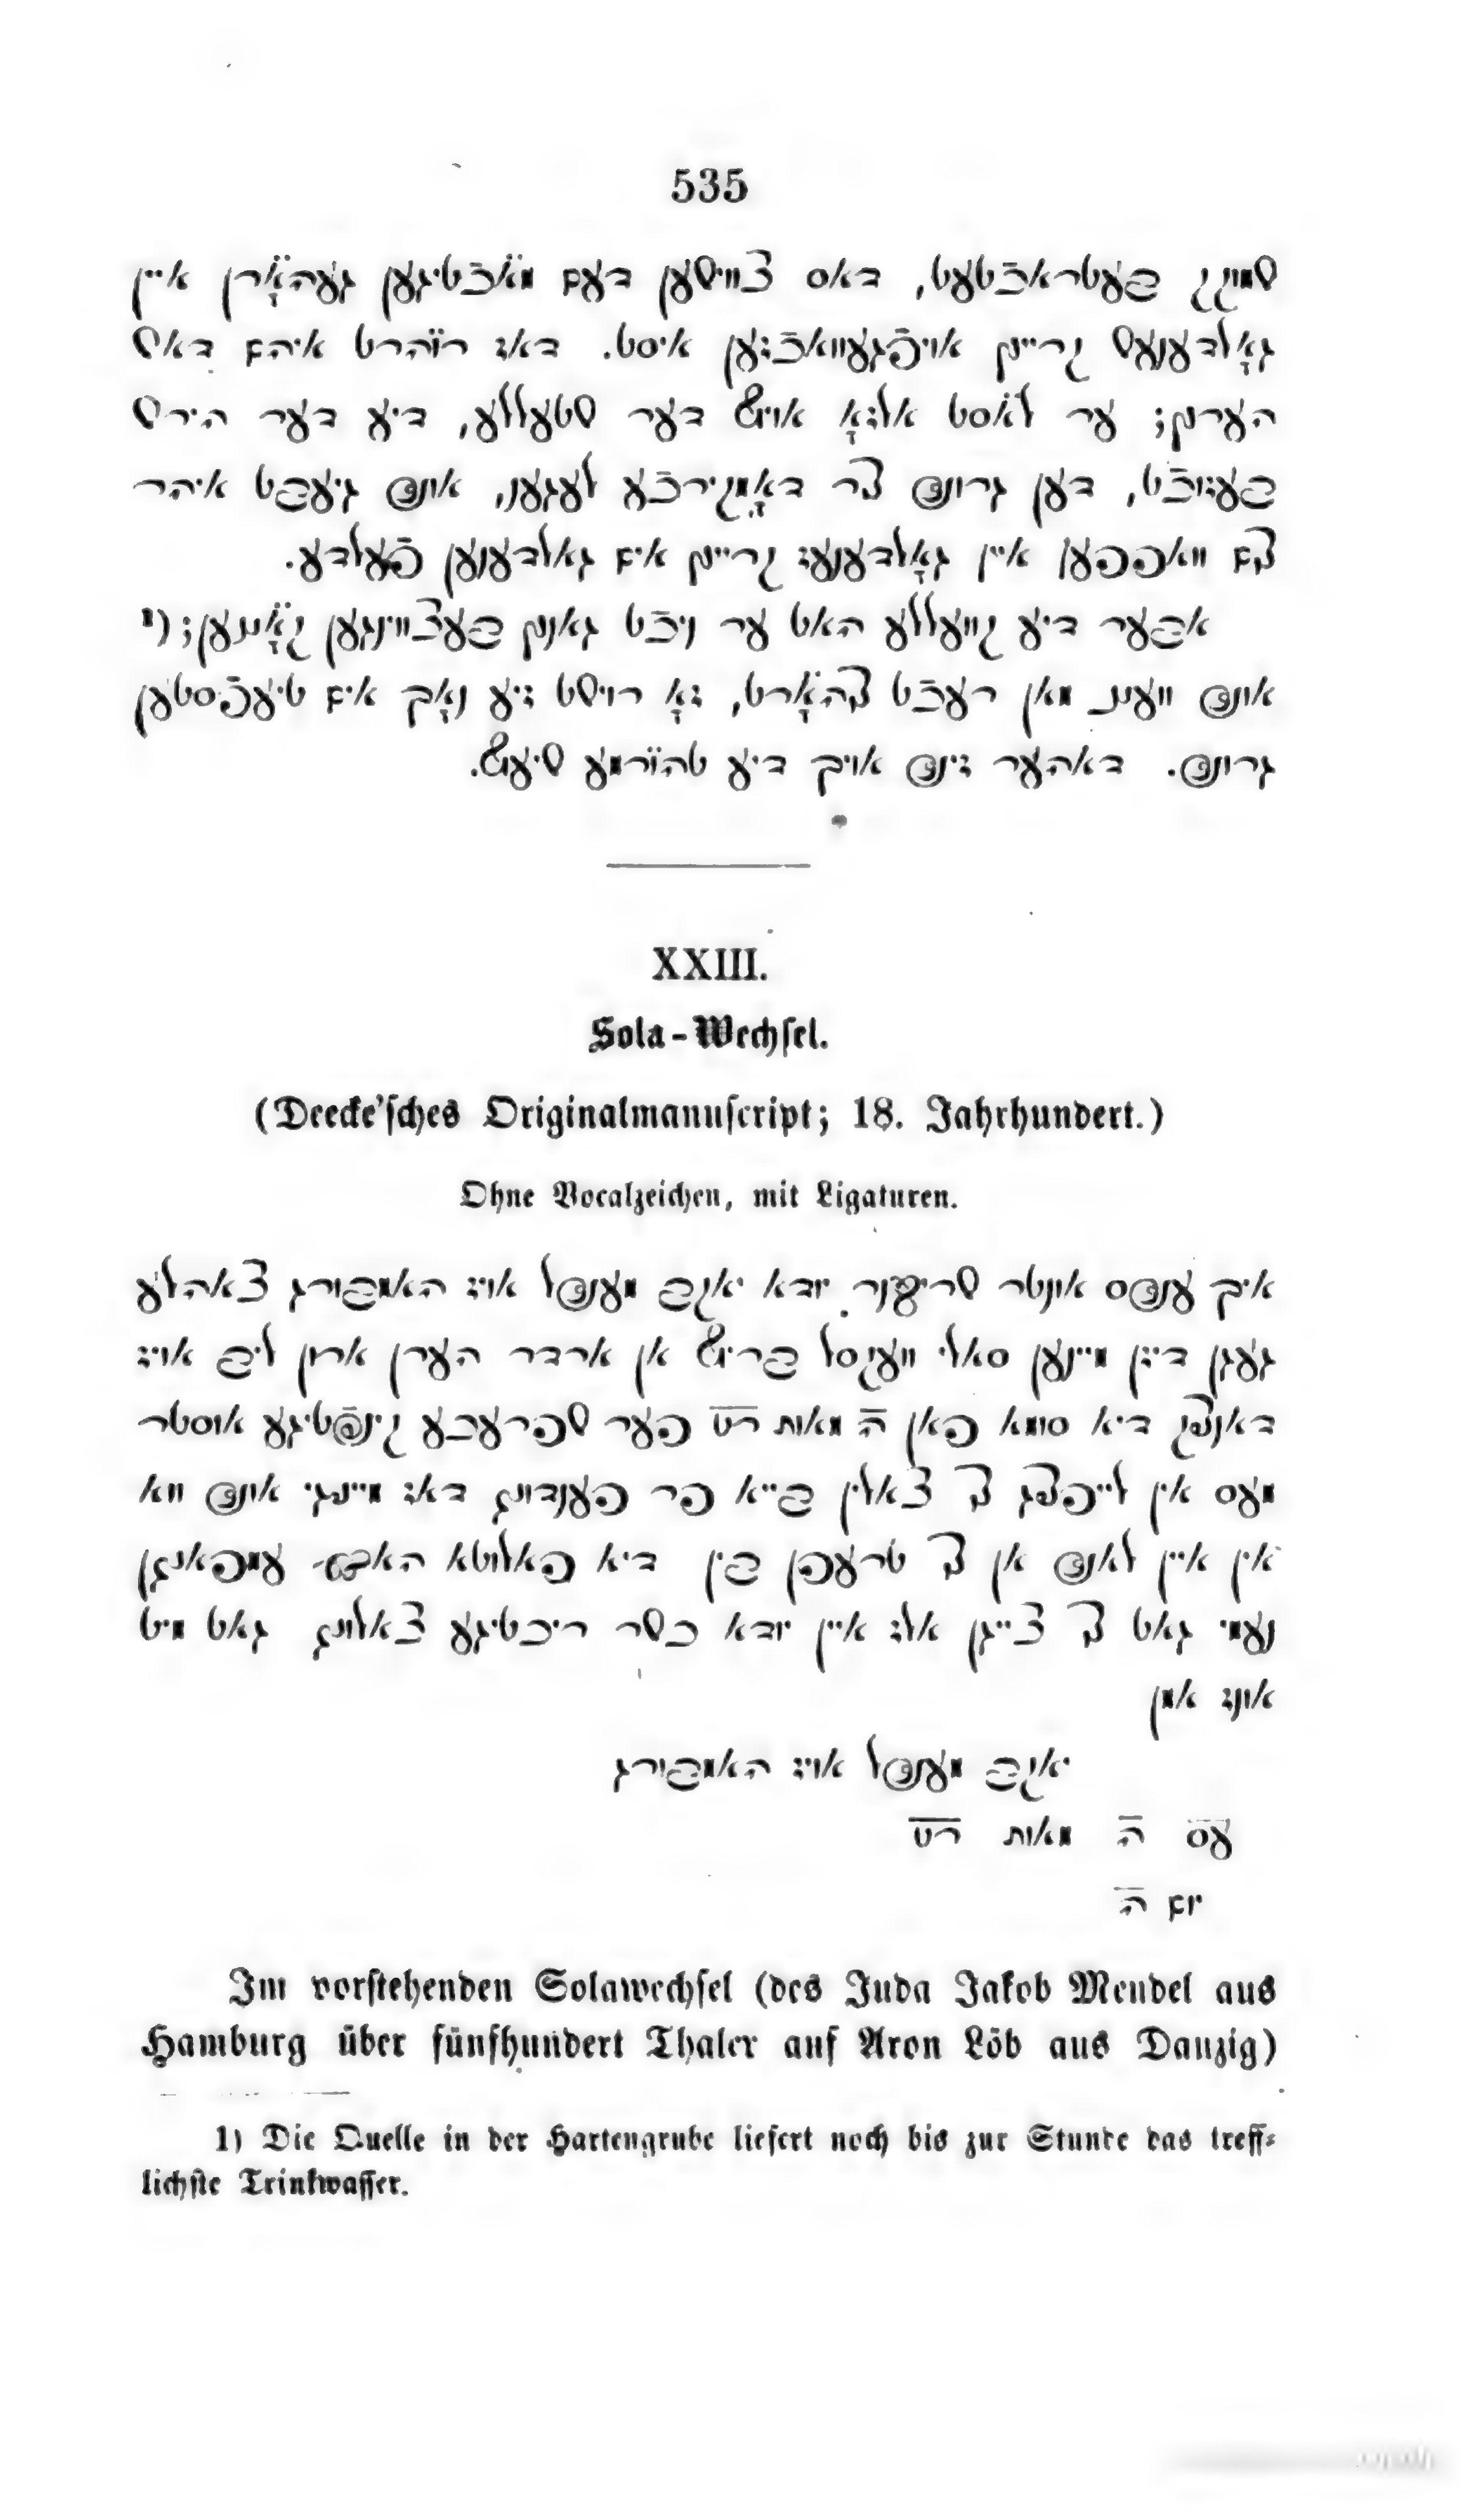 535
שמוקק בעטראכטעט, דאס צווישען דעם מאכטיגען געהארן איין
גאלדענעש קרייץ אויפגעוואכזען איסט. דאז רוהרט איהם דאש
הערץ; ער לאסט אלזא אויף דער שטעללע, דיע דער הירש
בעזוכט, דען גרונד צר דאמקירכע לעגען, אונד גיעבט איהר
צם וואפפען איין גאלדענעז קרייץ אים גאלדענען פעלדע.
אבער דיע קוועללע האט ער ניכט גאנץ בעצווינגען קאננען; (1
אונד ווענן מאן רעכט צהארט, זא רוישט זיע נאך אים טיעפסטען
גרונד. דאהער זינד אויך דיע טהורמע שיעף.
XXIII.
Sola-Wechsel.
(Deecke'sches Originalmanuscript; 18. Jahrhundert.)
Ohne Vocalzeichen, mit Ligaturen.
איך ענדס אונטר שריבנר יודא יאקב מענדל אויז האמבורג צאהלע
געגן דיזן מיינען סאלי וועקסל בריף אן ארדר הערן ארון ליב אויז
דאנציג דיא סומא פאן ה מאות רט פער שפרעכע קינפטיגע אוסטר
מעס אין לייפציג צו צאלין בייא פר פענדונג דאז מייניגי אונד ווא
אין איין לאנד אן צו טרעפן בין דיא פאלוטא האב עמפאנגן
נעמי גאט צו צייגן אלז איין יודא כשר ריכטיגע צאלונג גאט מיט
אונז אמן
יאקב מענדל אויז האמבורג
עס ה מאות רט
יום ה
Im vorstehenden Solawechsel (des Juda Jakob Mendel aus
Hamburg über fünfhundert Thaler auf Aron Löb aus Danzig)
1) Die Quelle in der Hartengrube liefert noch bis zur Stunde das treff-
lichste Trinkwasser.